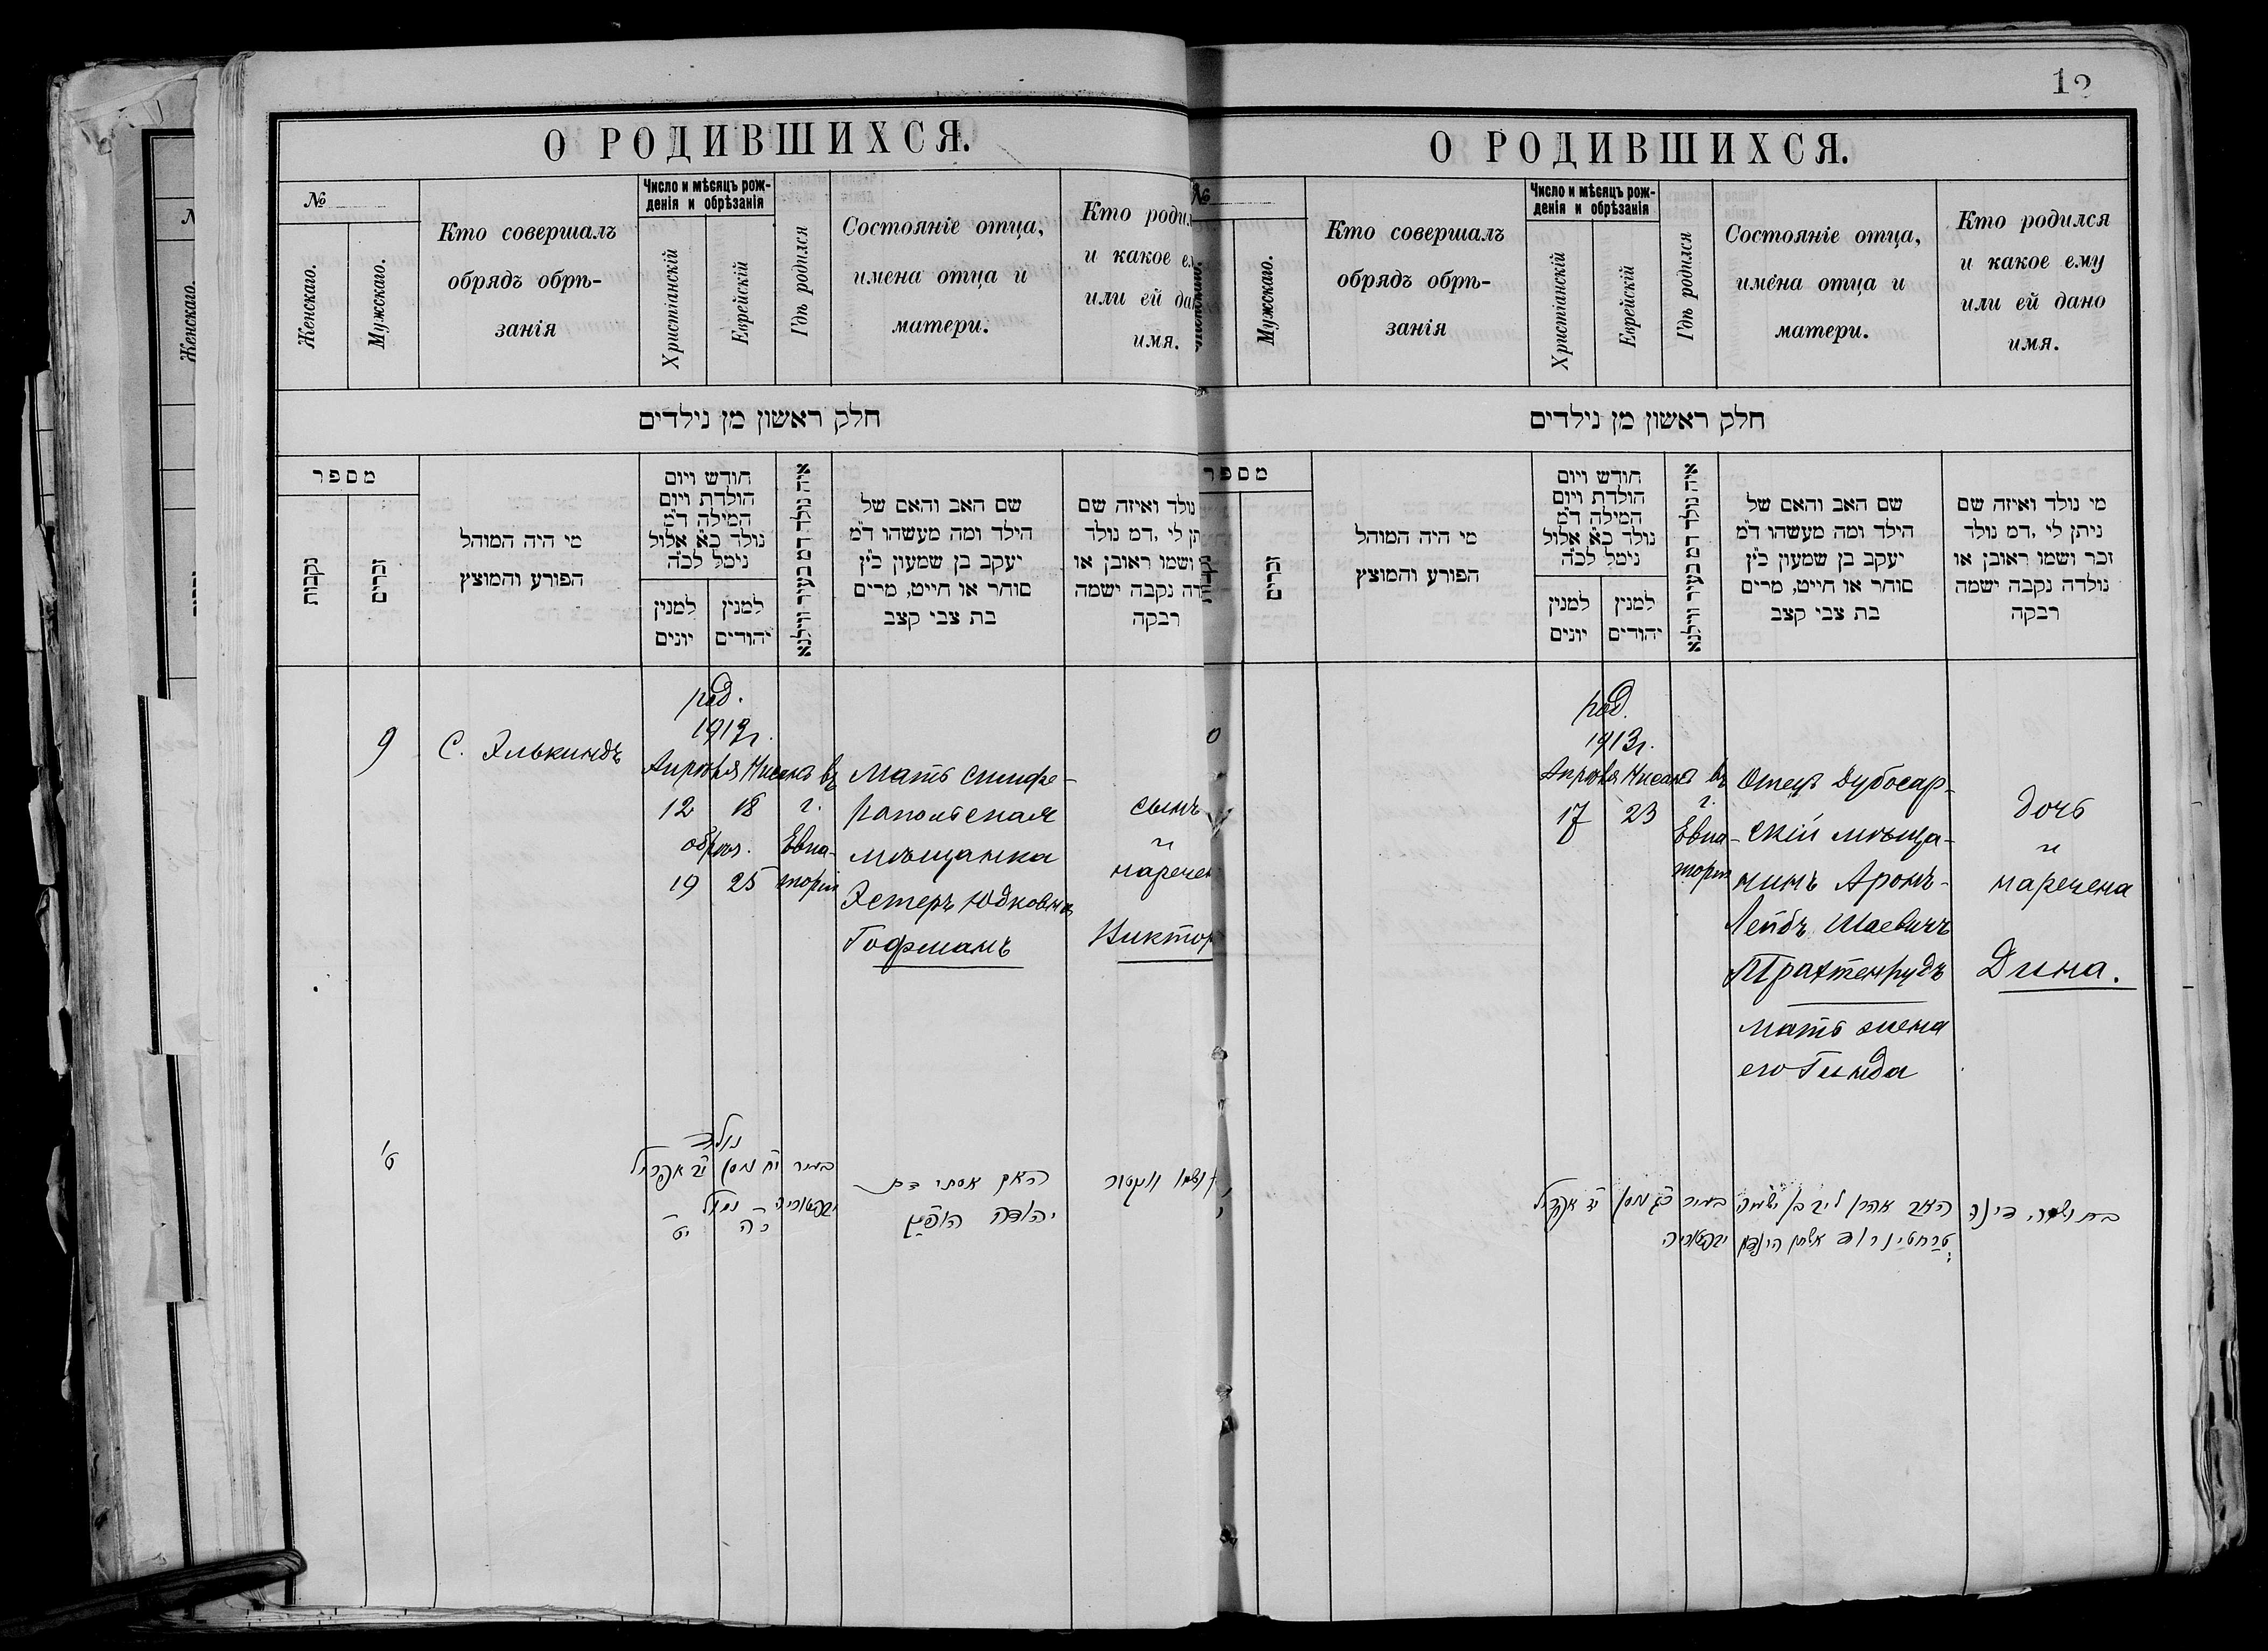 О РОДИВШИХСЯ.
№
Женскаго.
Мужскаго.
Кто совершалъ
обрядъ обрѣ-
занія
Число и мѣсяцъ рож-
денія и обрѣзанія
Христіанскій
Еврейскій
Гдѣ родился
Состояніе отца,
имена отца и
матери.
Кто родил
и какое ем
или ей дан
имя.
חלק ראשון מן נילדים
מספר
נקבות
זכרים
מי היה המוהל
הפורע והמוצץ
חודש ויום
הולדת ויום
המילה ד״מ
נולד כ״א אלול
נימל לכ״ה
למנין
יונים
למנין
יהודים
איה נולד דמ בעיר ווילנא
שם האב והאם של
הילד ומה מעשהו ד״מ
יעקב בן שמעון כ״ץ
סוחר או חייט, מרים
בת צבי קצב
נולד ואיזה שם
תן לי ,דמ נולד
ושמו ראובן או
דה נקבה ישמה
רבקה
9
С. Элькиндъ
род.
1913г.
Апрѣля Нисана въ
12 18 г.
обрѣз. Евпа-
19 25 торіи
Мать симфе-
ропольская
мѣщанка
Эстеръ Юдковна
Гофманъ
сынъ
и
наречен
Виктор
ט׳
נולד
י״ב אפריל
י״ח ניסן
בעיר
יבפטוריה
נימול
י״ט
כ״ה
האם אסתר בת
יהודה הופמן
ושמו וויקטור
12
О РОДИВШИХСЯ.
№
Мужскаго.
Кто совершалъ
обрядъ обрѣ-
занія
Число и мѣсяцъ рож-
денія и обрѣзанія
Христіанскій
Еврейскій
Гдѣ родился
Состояніе отца,
имена отца и
матери.
Кто родился
и какое ему
или ей дано
имя.
חלק ראשון מן נילדים
מספר
זכרים
מי היה המוהל
הפורע והמוצץ
חודש ויום
הולדת ויום
המילה ד״מ
נולד כ״א אלול
נימל לכ״ה
למנין
יונים
למנין
יהודים
איה נולד דמ בעיר ווילנא
שם האב והאם של
הילד ומה מעשהו ד״מ
יעקב בן שמעון כ״ץ
סוחר או חייט, מרים
בת צבי קצב
מי נולד ואיזה שם
ניתן לי ,דמ נולד
זכר ושמו ראובן או
נולדה נקבה ישמה
רבקה
род.
1913г.
Апрѣля Нисана въ
17 23 г.
Евпа-
торіи
Отецъ Дубосар-
скій мѣща-
нинъ Аронъ-
Лейбъ Шаевичъ
Трахтенрудъ
Мать жена
его Гинда
дочь
и
наречена
Дина.
אפריל
כ״ג ניסן
בעיר
יבפטוריה
האב אהרן ליב בן ישעיה
טרחטינרוד אשתו הינדא
בת ושמה דינה